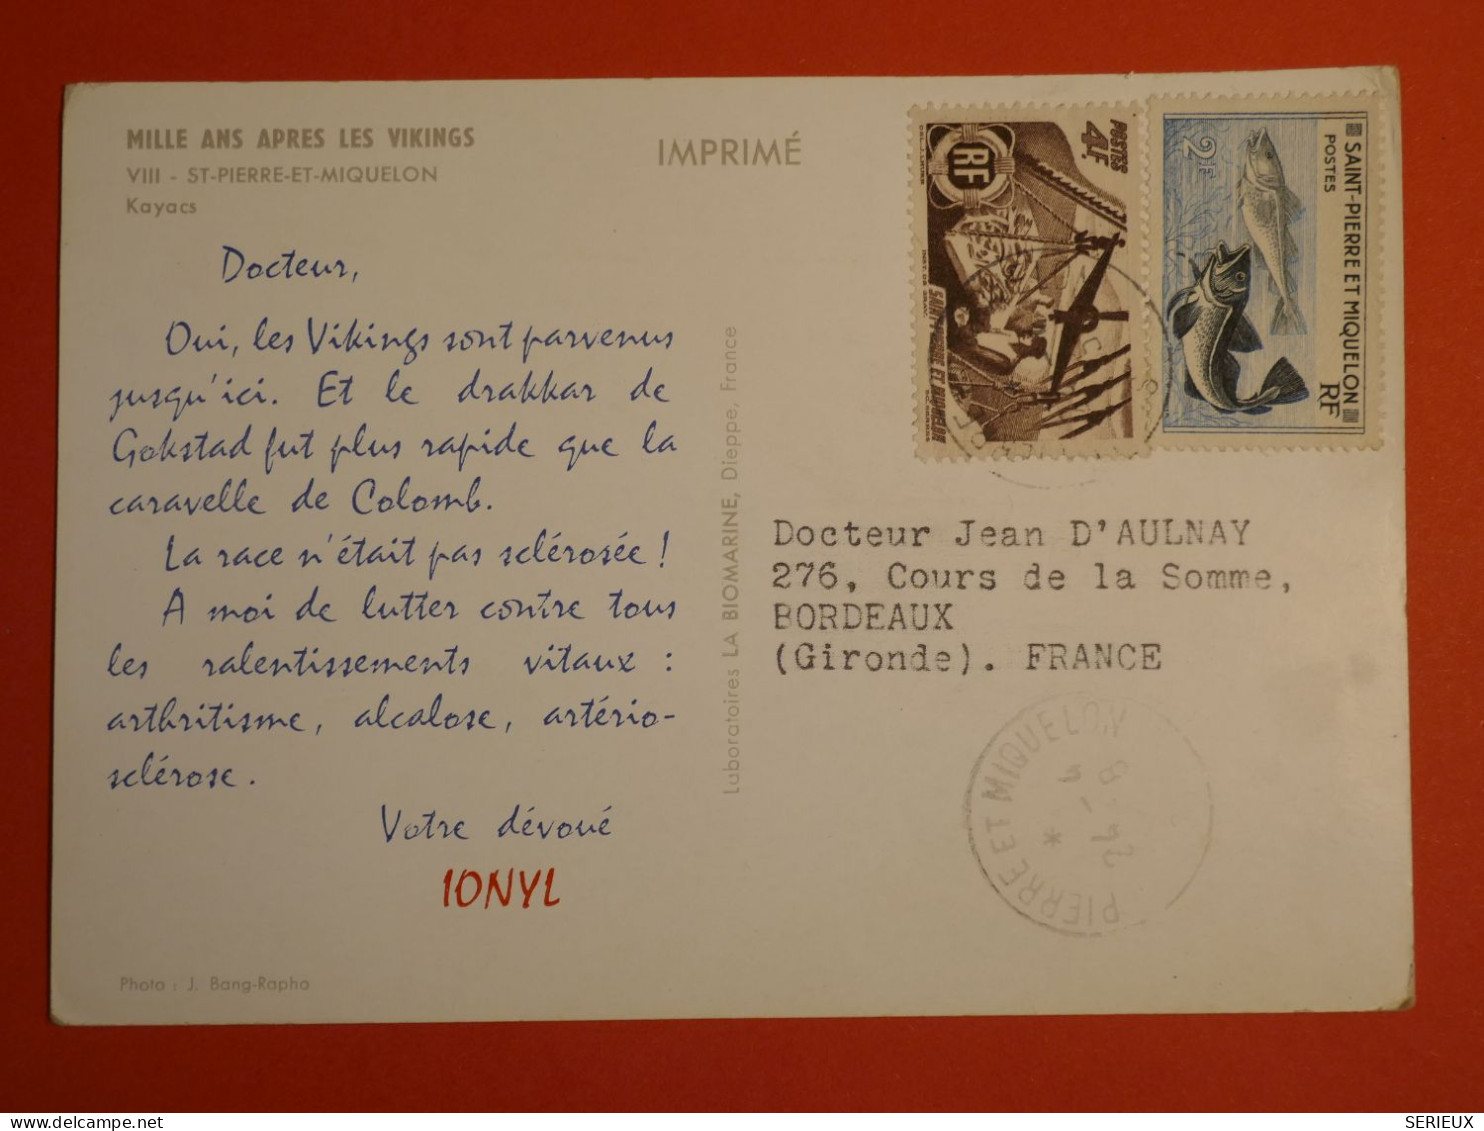 MILLE ANS APRES LES VIKINGS
VIII - ST-PIERRE-ET-MIQUELON
Kayacs
IMPRIMÉ
Docteur,
Oui, les Vikings sont parvenus
jusqu'ici. Et le drakkar de
Gokstad fut plus rapide que la
caravelle de Colomb.
La race n'était pas sclérosée !
A moi de lutter contre tous
les ralentissements vitaux :
arthritisme, alcalose, artério-
sclérose.
Votre dévoué
IONYL
Photo : J. Bang-Rapho
Laboratoires LA BIOMARINE, Dieppe, France
POSTES
4F
RF
SAINT-PIERRE ET MIQUELON
2F
SAINT-PIERRE ET MIQUELON
POSTES
RF
Docteur Jean D'AULNAY
276, Cours de la Somme,
BORDEAUX
(Gironde). FRANCE
PIERRE ET MIQUELON
SERIEUX